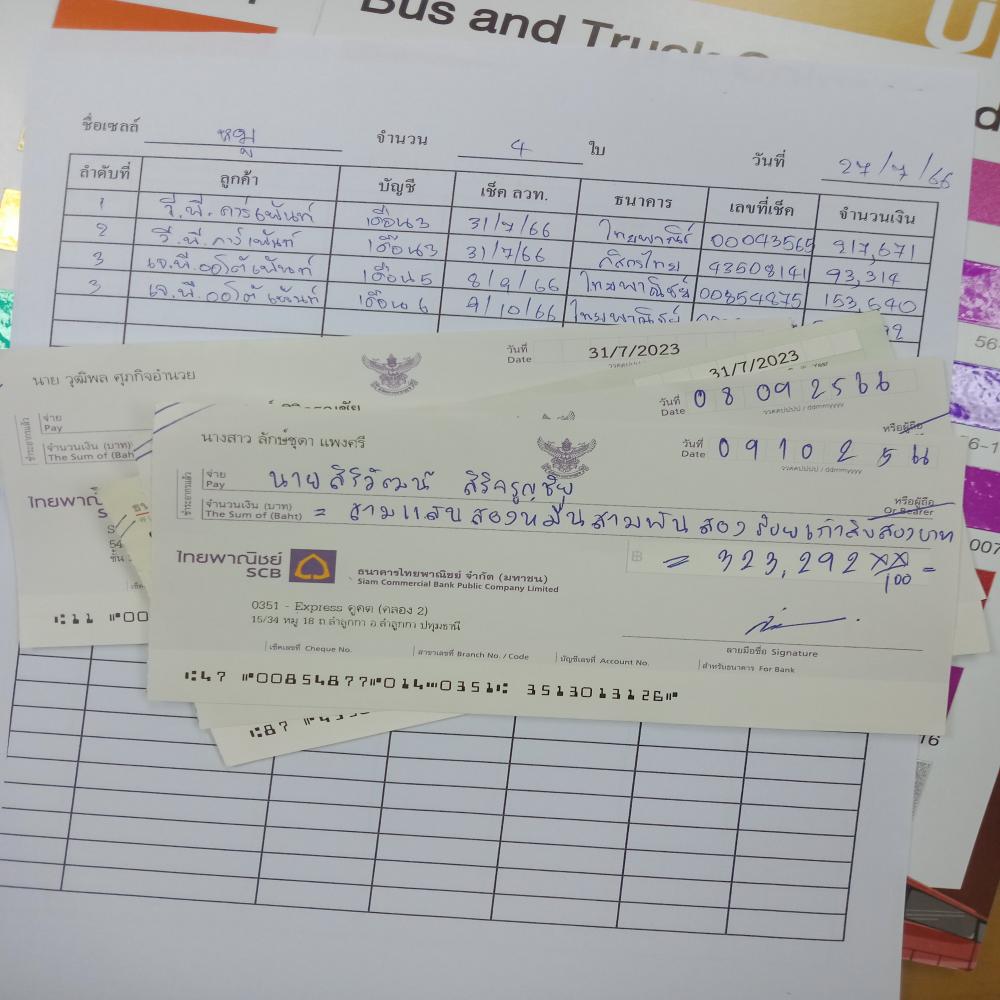 Bus and Truck
ชื่อเซลล์ หมู จำนวน 4 ใบ วันที่ 27/7/66
ลำดับที่ ลูกค้า บัญชี เช็ค ลวท. ธนาคาร เลขที่เช็ค จำนวนเงิน
1 วี.พี. คาร์เพ้นท์ เดือน 3 31/7/66 ไทยพาณิชย์ 00043565 217,671
2 วี.พี. คาร์เพ้นท์ เดือน 3 31/7/66 กสิกรไทย 43508141 93,314
3 เจ.พี.ออโต้เพ้นท์ เดือน 5 8/9/66 ไทยพาณิชย์ 00854875 153,640
3 เจ.พี.ออโต้เพ้นท์ เดือน 6 9/10/66 ไทยพาณิชย์
วันที่ Date 31/7/2023
31/7/2023
นาย วุฒิพล ศุภกิจอำนวย
วันที่ Date 08092566
ววดดปปปป / ddmmyyyy
หรือผู้ถือ
จ่าย Pay
จำนวนเงิน (บาท)
The Sum of (Bah
นางสาว ลักษ์ชุดา แพงศรี
วันที่ Date 09102566
ววดดปปปป / ddmmyyyy
ชำระอากรแล้ว
จ่าย Pay นายสิริวัฒน์ สิริจรูญชัย
หรือผู้ถือ Or Bearer
จำนวนเงิน (บาท) The Sum of (Baht) = สามแสนสองหมื่นสามพันสองร้อยเก้าสิบสองบาท
B = 323,292 XX/100 =
ไทยพาณิชย์ SCB
ธนาคารไทยพาณิชย์ จำกัด (มหาชน)
Siam Commercial Bank Public Company Limited
0351 - Express คูคต (คลอง 2)
15/34 หมู่ 18 ถ.ลำลูกกา อ.ลำลูกกา ปทุมธานี
ลายมือชื่อ Signature
เช็คเลขที่ Cheque No. สาขาเลขที่ Branch No. / Code บัญชีเลขที่ Account No. สำหรับธนาคาร For Bank
⑆47 ⑈00854877⑈014⑉0351⑆ 3513013126⑈